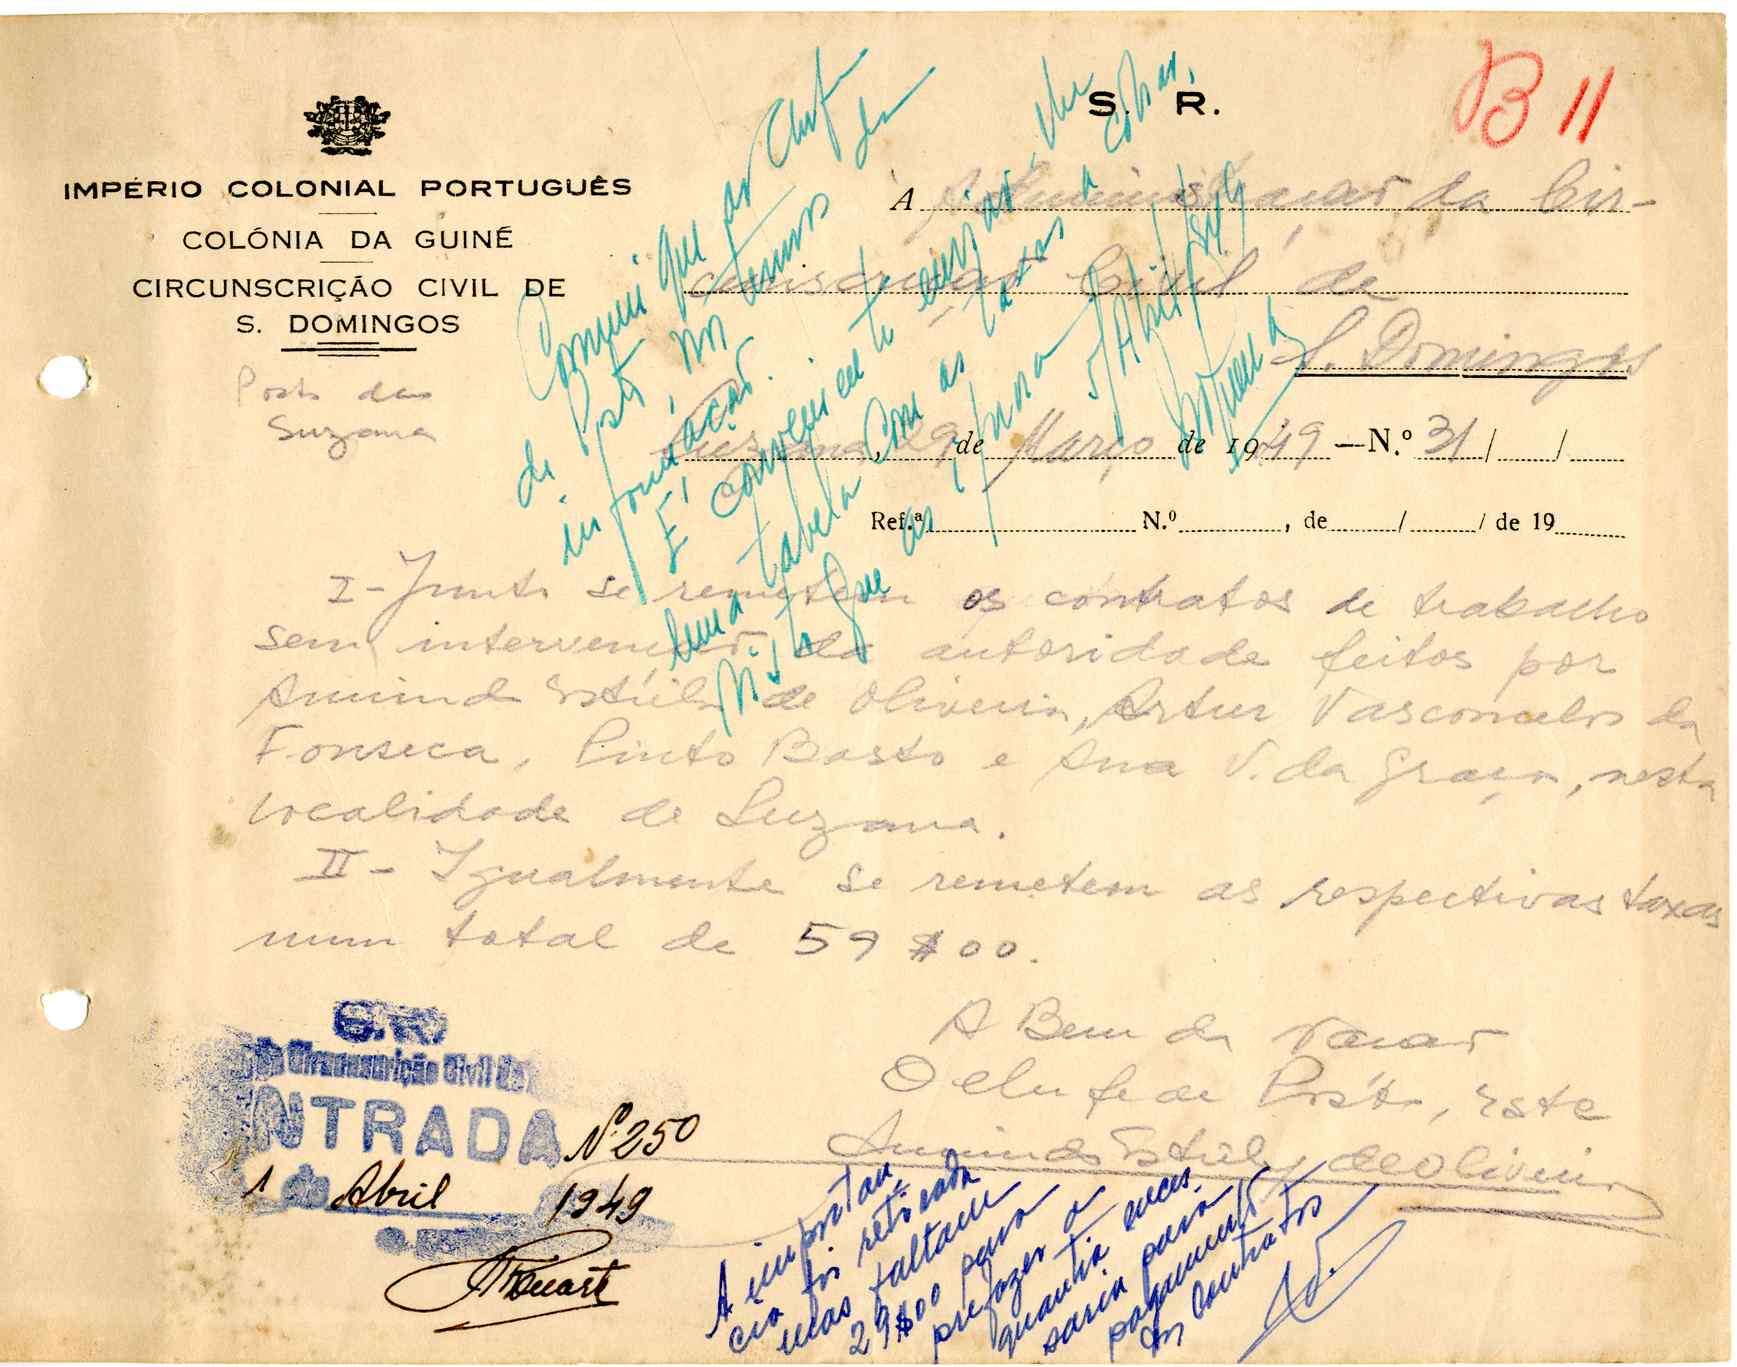 S. R.
B 11
IMPÉRIO COLONIAL PORTUGUÊS
COLÓNIA DA GUINÉ
CIRCUNSCRIÇÃO CIVIL DE
S. DOMINGOS
Posto de
Suzana
A Administração da Cir-
cunscrição Civil de
S. Domingos
Suzana, 29 de Março de 1949 — N.º 31/ /
Ref.ª N.º , de / / de 19
Comunique ao Chefe
de Posto nos termos da
informação.
É conveniente enviar-lhe
uma tabela com as taxas a cobrar,
visto que as ignora
5/Abril/949
I - Junto se remetem os contratos de trabalho
sem intervenção da autoridade feitos por
Armindo Estúlio de Oliveira, Artur Vasconcelos da
Fonseca, Pinto Basto e Ana V. da Graça, nesta
localidade de Suzana.
II - Igualmente se remetem as respectivas taxas
num total de 59$00.
A Bem da Nação
O Chefe de Posto, Este
Armindo Estúlio de Oliveira
S. R.
Circunscrição Civil de
ENTRADA Nº 250
1 de Abril 1949
A importan-
cia foi retirada
mas faltam
29$00 para
prefazer a
quantia neces-
saria para
pagamento
dos contratos